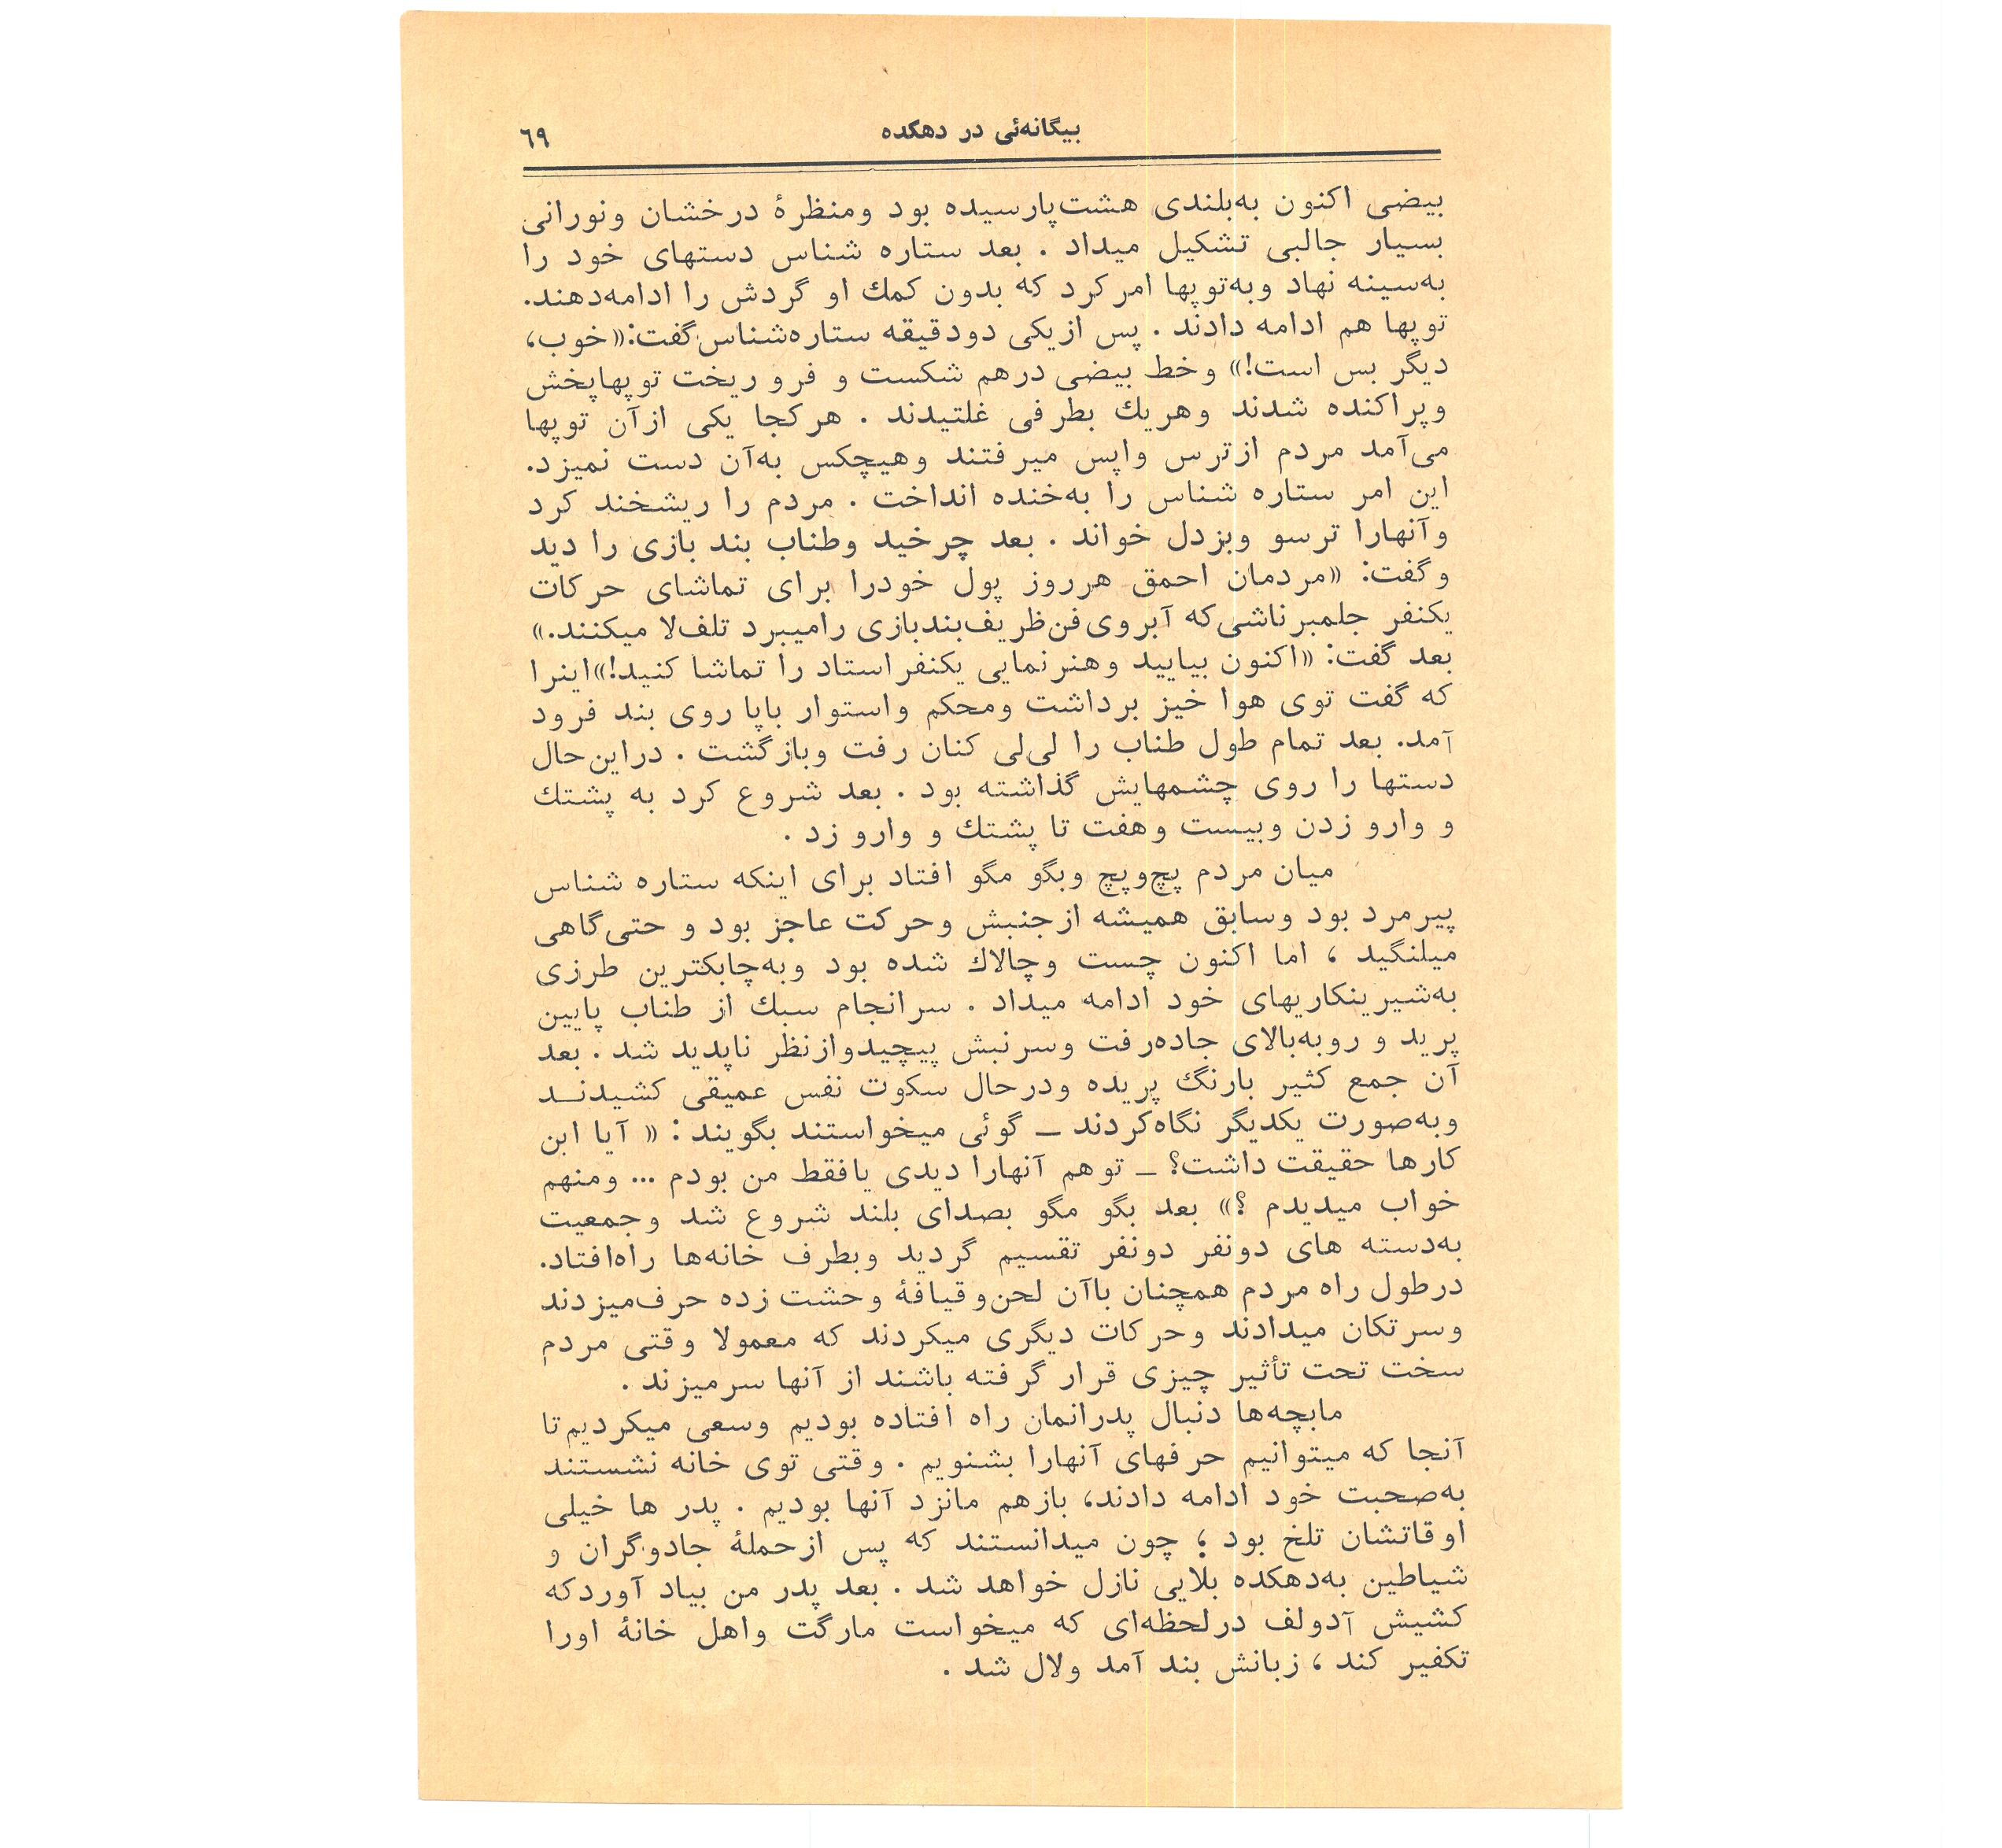 بیگانه‌ئی در دهکده
٦٩
بیضی اکنون به‌بلندی هشت‌پارسیده بود ومنظرهٔ درخشان ونورانی
بسیار جالبی تشکیل میداد . بعد ستاره شناس دستهای خود را
به‌سینه نهاد وبه‌توپها امرکرد که بدون کمك او گردش را ادامه‌دهند.
توپها هم ادامه دادند . پس ازیکی دودقیقه ستاره‌شناس‌گفت:«خوب،
دیگر بس است!» وخط بیضی درهم شکست و فرو ریخت توپهاپخش
وپراکنده شدند وهریك بطرفی غلتیدند . هرکجا یکی ازآن توپها
می‌آمد مردم ازترس واپس میرفتند وهیچکس به‌آن دست نمیزد.
این امر ستاره شناس را به‌خنده انداخت . مردم را ریشخند کرد
وآنهارا ترسو وبزدل خواند . بعد چرخید وطناب بند بازی را دید
وگفت: «مردمان احمق هرروز پول خودرا برای تماشای حرکات
یکنفر جلمبرناشی‌که آبروی‌فن‌ظریف‌بندبازی رامیبرد تلف‌لا میکنند.»
بعد گفت: «اکنون بیایید وهنرنمایی یکنفراستاد را تماشا کنید!»اینرا
که گفت توی هوا خیز برداشت ومحکم واستوار باپا روی بند فرود
آمد. بعد تمام طول طناب را لی‌لی کنان رفت وبازگشت . دراین‌حال
دستها را روی چشمهایش گذاشته بود . بعد شروع کرد به پشتك
و وارو زدن وبیست وهفت تا پشتك و وارو زد .
میان مردم پچ‌وپچ وبگو مگو افتاد برای اینکه ستاره شناس
پیرمرد بود وسابق همیشه ازجنبش وحرکت عاجز بود و حتی‌گاهی
میلنگید ، اما اکنون چست وچالاك شده بود وبه‌چابکترین طرزی
به‌شیرینکاریهای خود ادامه میداد . سرانجام سبك از طناب پایین
پرید و روبه‌بالای جاده‌رفت وسرنبش پیچیدوازنظر ناپدید شد . بعد
آن جمع کثیر بارنگ پریده ودرحال سکوت نفس عمیقی کشیدنـد
وبه‌صورت یکدیگر نگاه‌کردند ــ گوئی میخواستند بگویند : « آیا ابن
کارها حقیقت داشت؟ ــ توهم آنهارا دیدی یافقط من بودم ... ومنهم
خواب میدیدم ؟» بعد بگو مگو بصدای بلند شروع شد وجمعیت
به‌دسته های دونفر دونفر تقسیم گردید وبطرف خانه‌ها راه‌افتاد.
درطول راه مردم همچنان باآن لحن‌وقیافهٔ وحشت زده حرف‌میزدند
وسرتکان میدادند وحرکات دیگری میکردند که معمولا وقتی مردم
سخت تحت تأثیر چیزی قرار گرفته باشند از آنها سرمیزند .
مابچه‌ها دنبال پدرانمان راه افتاده بودیم وسعی میکردیم‌تا
آنجا که میتوانیم حرفهای آنهارا بشنویم . وقتی توی خانه نشستند
به‌صحبت خود ادامه دادند، بازهم مانزد آنها بودیم . پدر ها خیلی
اوقاتشان تلخ بود ؛ چون میدانستند که پس ازحملهٔ جادوگران و
شیاطین به‌دهکده بلایی نازل خواهد شد . بعد پدر من بیاد آوردکه
کشیش آدولف درلحظه‌ای که میخواست مارگت واهل خانهٔ اورا
تکفیر کند ، زبانش بند آمد ولال شد .